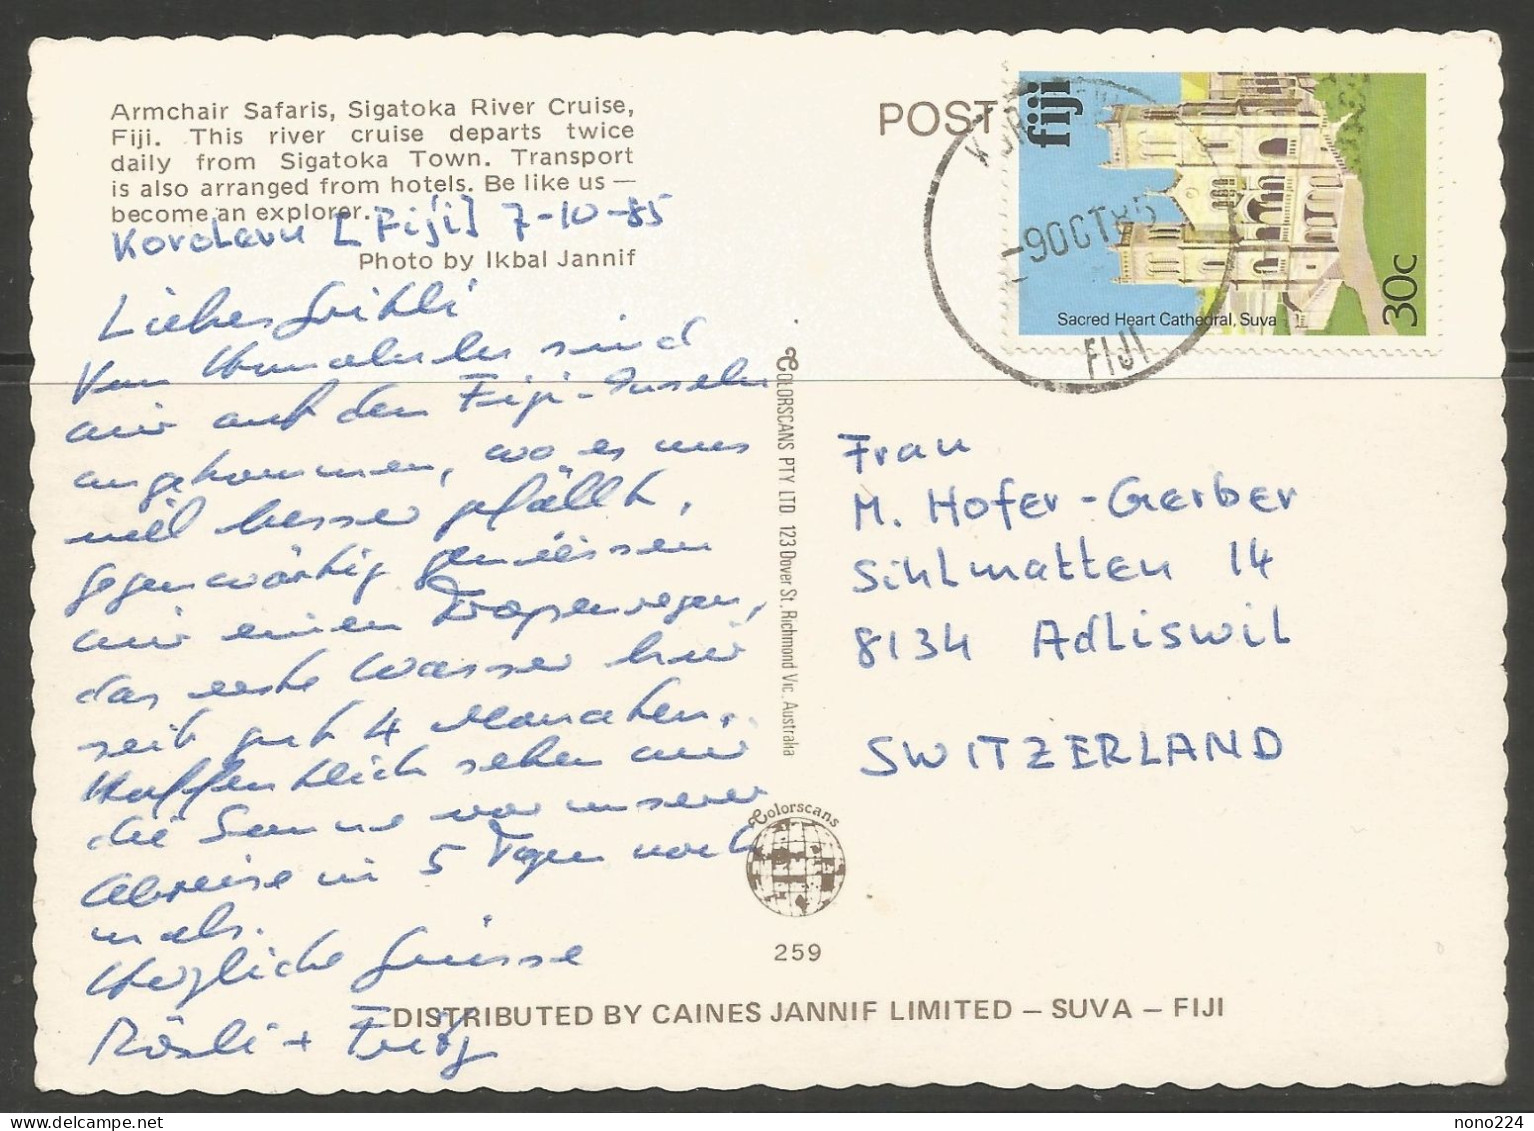 Armchair Safaris, Sigatoka River Cruise,
Fiji. This river cruise departs twice
daily from Sigatoka Town. Transport
is also arranged from hotels. Be like us —
become an explorer.
Photo by Ikbal Jannif
Korolevu [Fiji] 7-10-85
Liebes
Von sind
wir auf den Fiji-Inseln
angekommen, wo es uns
viel besser gefällt,
gegenwärtig geniessen
wir einen Tropenregen,
das erste Wasser hier
seit gut 4 Monaten.
Hoffentlich sehen wir
die Sonne vor unserer
Abreise in 5 Tagen noch
mals.
Herzliche Grüsse
Rösli +
POST
fiji
Sacred Heart Cathedral, Suva
30c
-9OCT85
FIJI
COLORSCANS PTY LTD 123 Dover St. Richmond Vic. Australia
Frau
M. Hofer-Gerber
Sihlmatten 14
8134 Adliswil
SWITZERLAND
Colorscans
259
DISTRIBUTED BY CAINES JANNIF LIMITED – SUVA – FIJI
nono224